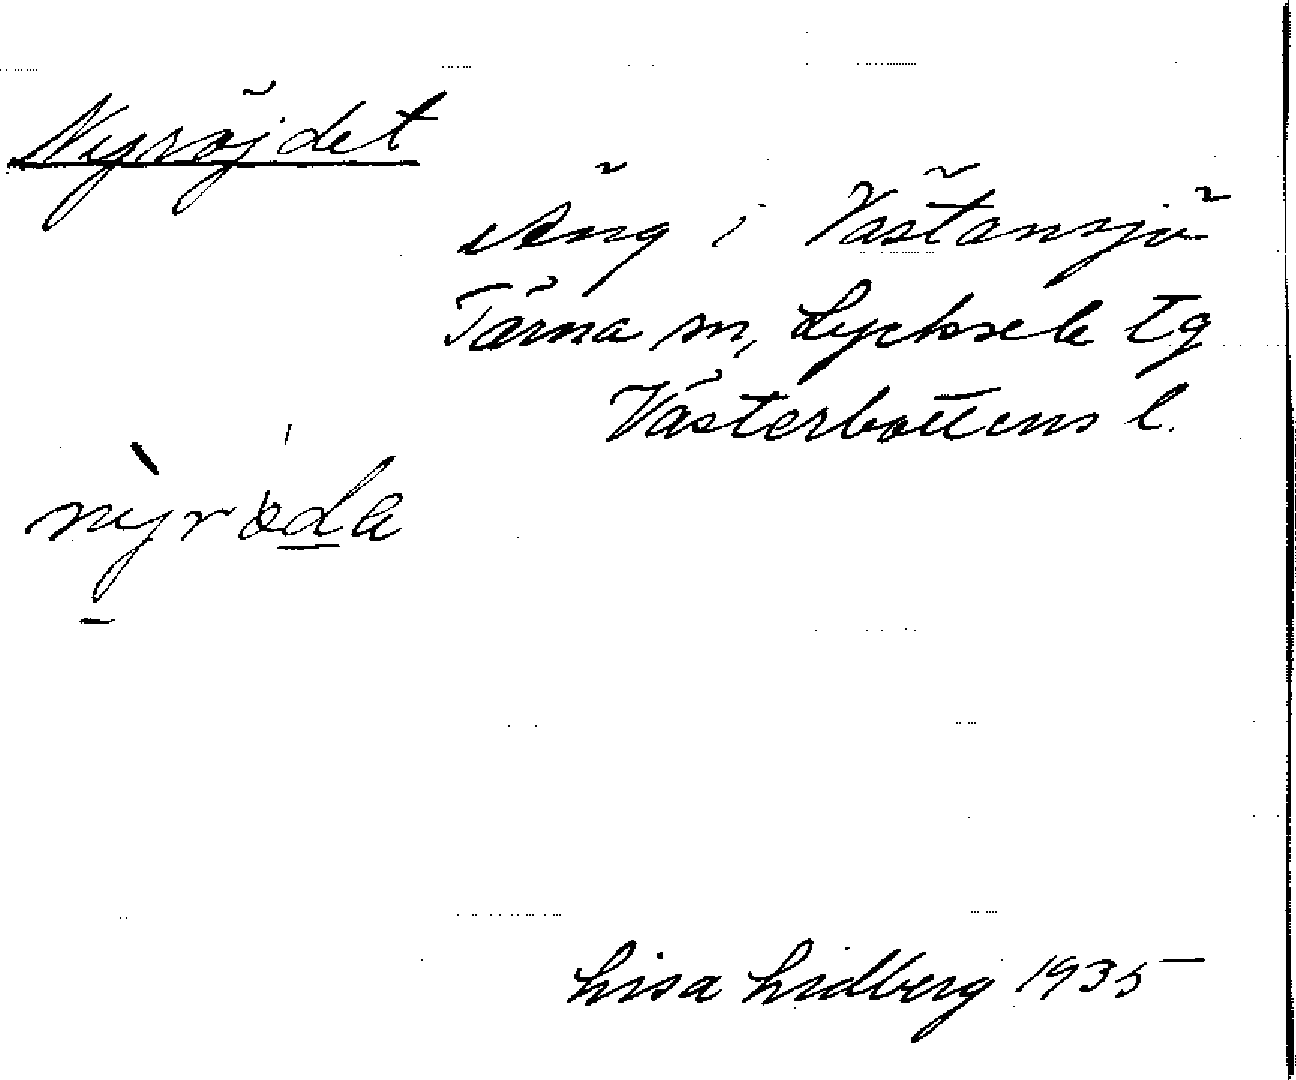 Nyröjdet
Äng i Västansjö
Tärna sn, Lycksele tg
Västerbottens l.
nyröda
Lisa Lidberg 1935